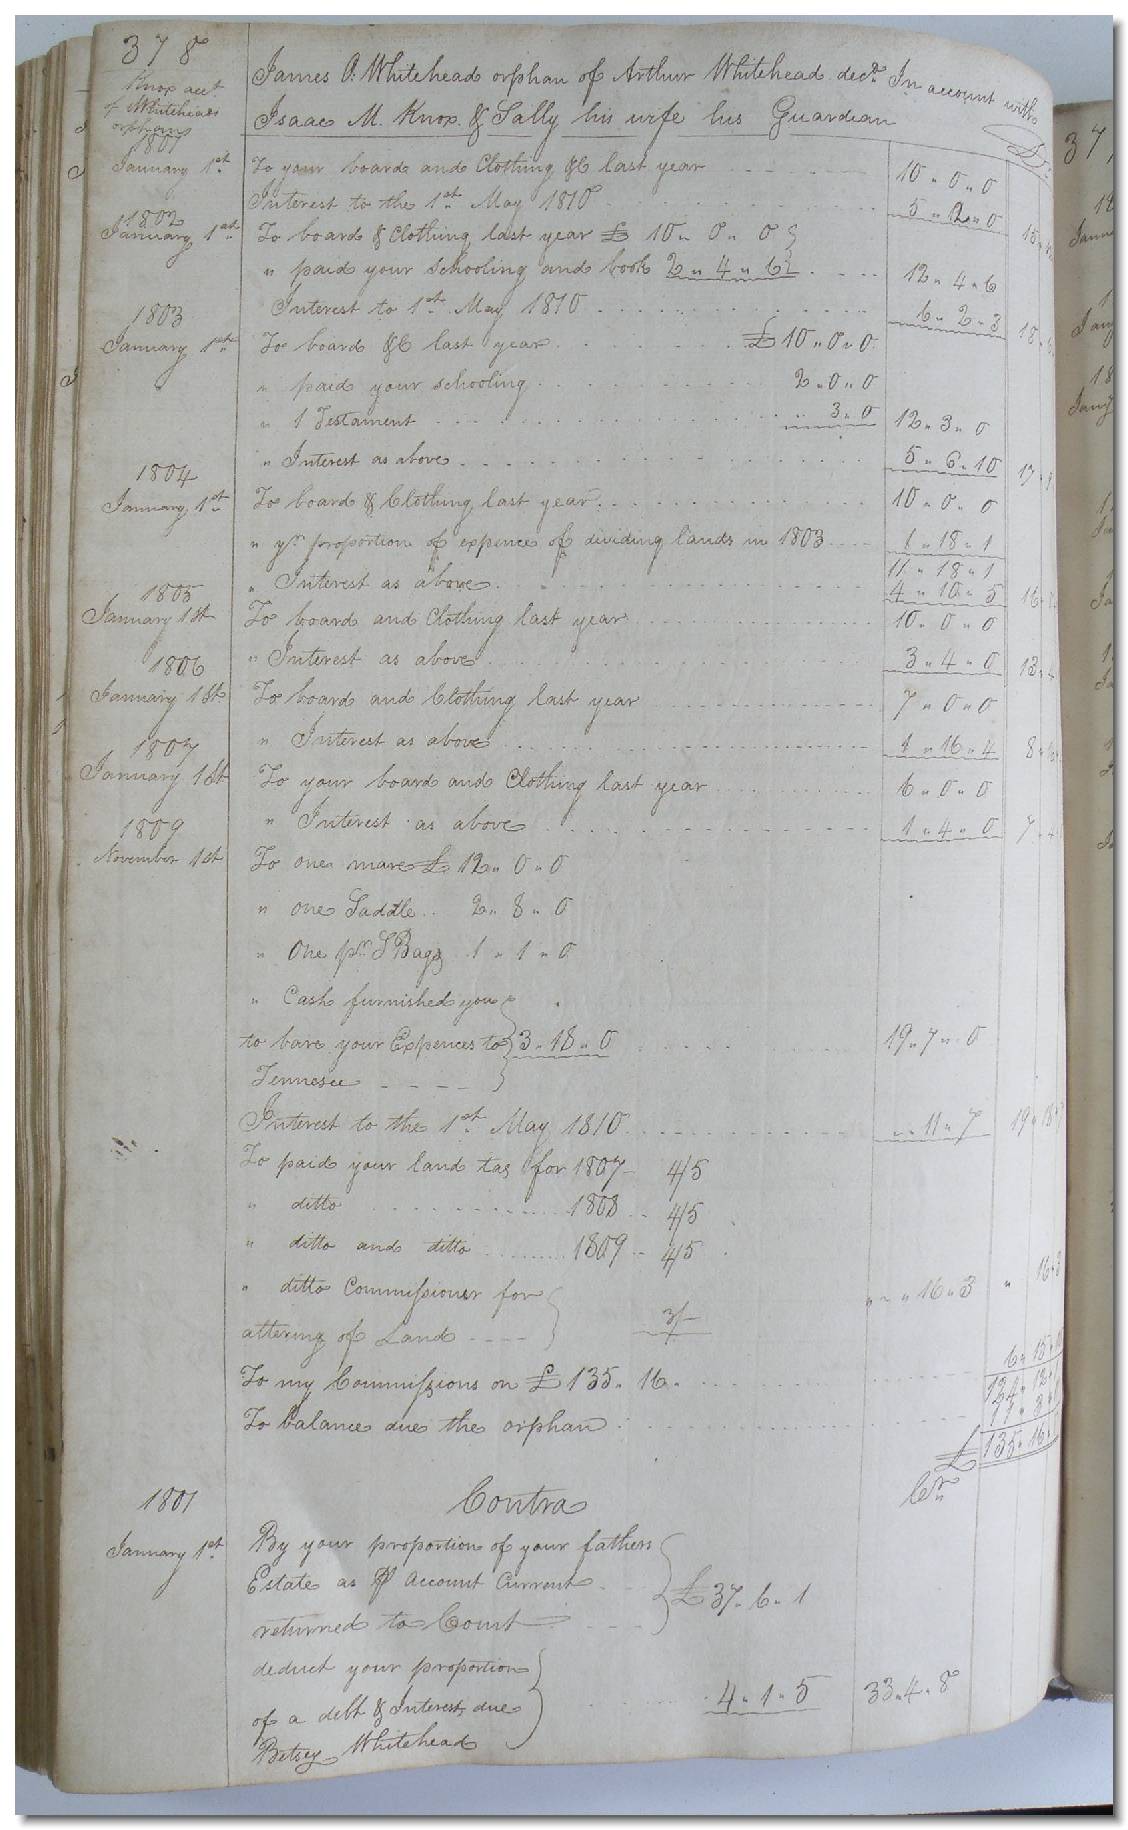 378
Knox acct
of Whiteheads
orphans
James A. Whitehead orphan of Arthur Whitehead decd. In account with
Isaac M. Knox & Sally his wife his Guardian
Dr.
1801
January 1st. To your board and Clothing &C last year 10 " 0 " 0
Interest to the 1st. May 1810 5 " 12 " 0
1802
January 1st. To board & Clothing last year £ 10 " 0 " 0
" paid your schooling and book 2 " 4 " 6 12 " 4 " 6
Interest to 1st. May 1810 6 " 2 " 3
1803
January 1st. To board &C last year £ 10 " 0 " 0
" paid your schooling 2 " 0 " 0
" 1 Testament " 3 " 0 12 " 3 " 0
" Interest as above 5 " 6 " 10
1804
January 1st. To board & Clothing last year 10 " 0 " 0
" yr. proportion of expence of dividing lands in 1803 1 " 18 " 1
11 " 18 " 1
" Interest as above 4 " 10 " 5
1805
January 1st To board and Clothing last year 10 " 0 " 0
" Interest as above 3 " 4 " 0
1806
January 1st To board and Clothing last year 7 " 0 " 0
" Interest as above 1 " 16 " 4
1807
January 1st To your board and Clothing last year 6 " 0 " 0
" Interest as above 1 " 4 " 0
1809
November 1st To one mare £ 12 " 0 " 0
" one Saddle 2 " 8 " 0
" One pr. S Bags 1 " 1 " 0
" Cash furnished you
to bare your Expences to 3 " 18 " 0 19 " 7 " 0
Tennesee
Interest to the 1st. May 1810 " " 11 " 7
To paid your land tax for 1807 4/5
" ditto 1808 4/5
" ditto and ditto 1809 4/5
" ditto Commissioner for
altering of Land 3/- " " 16 " 3 " 16 " 3
To my Commissions on £ 135 " 16 "
To balance due the orphan
£ 135 " 16 "
1801 Contra Cr.
January 1st. By your proportion of your fathers
Estate as Pr Account Current £ 37 " 6 " 1
returned to Court
deduct your proportion
of a debt & Interest due 4 " 1 " 5 33 " 4 " 8
Betsey Whitehead